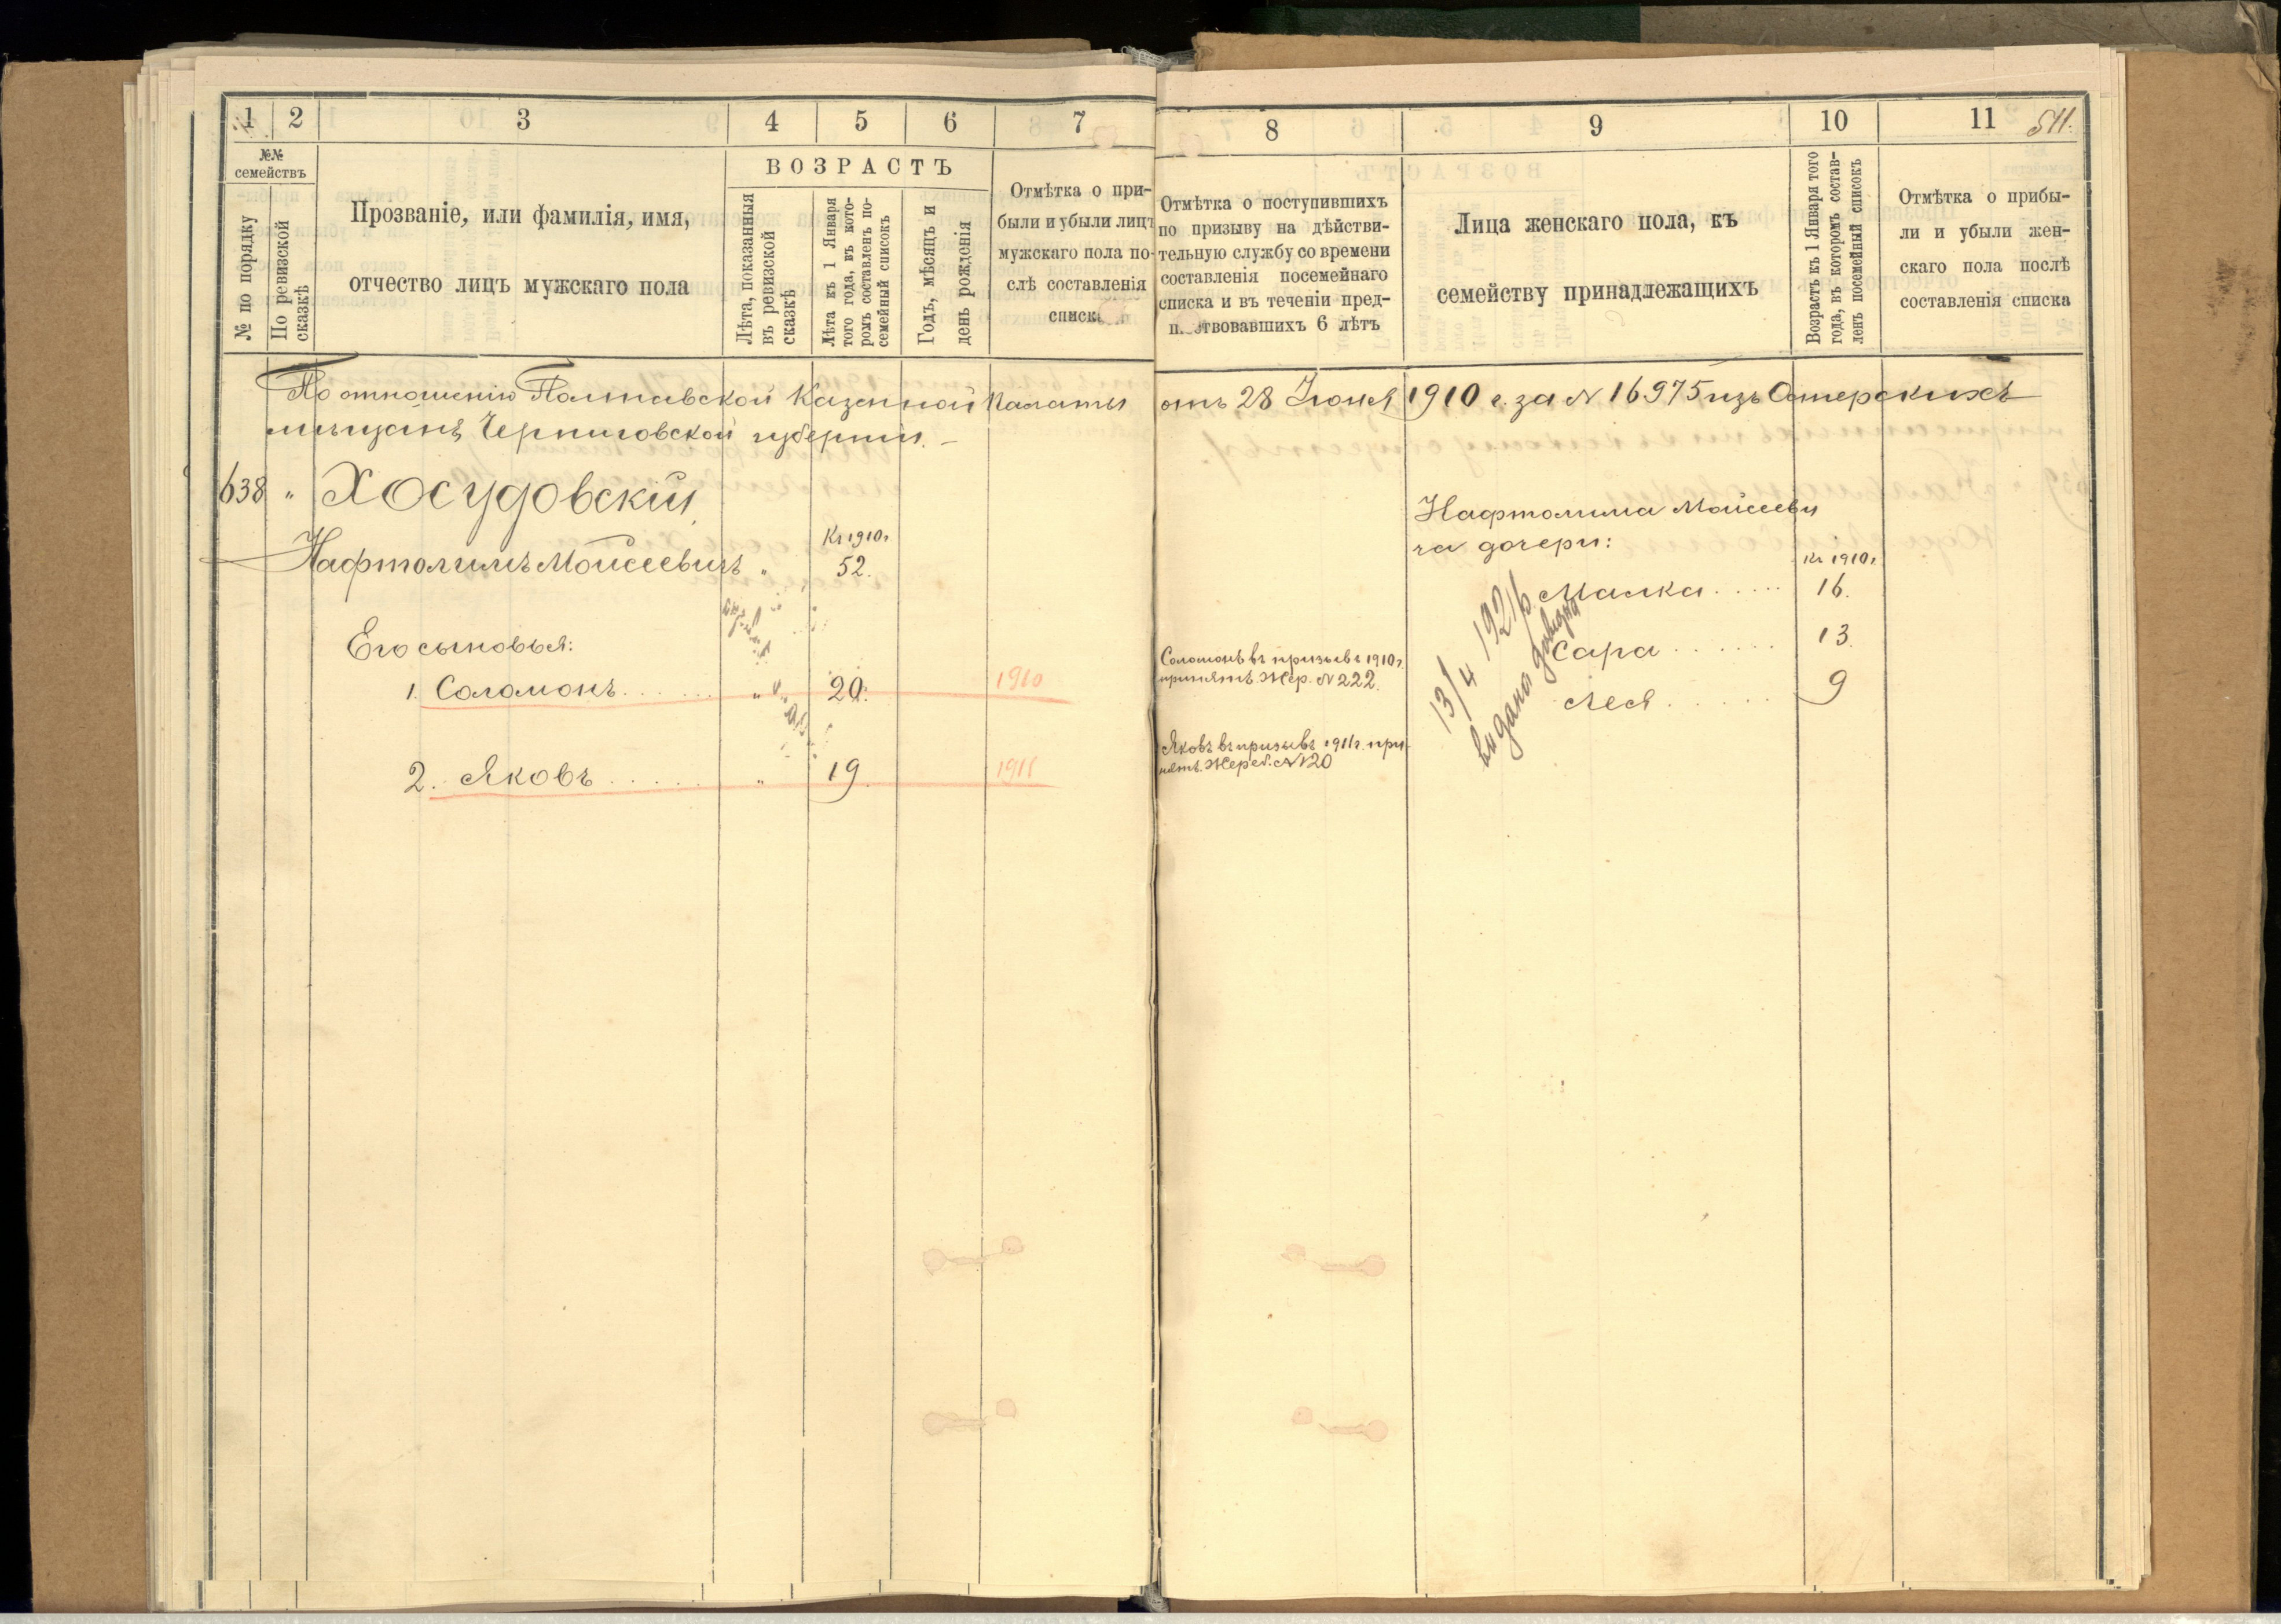 1
2
3
4
5
6
7
№№ семействъ
№ по порядку
По ревизской сказкѣ
Прозваніе, или фамилія, имя,
отчество лицъ мужскаго пола
ВОЗРАСТЪ
Лѣта, показанныя
въ ревизской
сказкѣ
Лѣта къ 1 Января
того года, въ кото-
ромъ составленъ по-
семейный списокъ
Годъ, мѣсяцъ и
день рожденія
Отмѣтка о при-
были и убыли лицъ
мужскаго пола по-
слѣ составленія
списка
8
9
10
11
511.
Отмѣтка о поступившихъ
по призыву на дѣйстви-
тельную службу со времени
составленія посемейнаго
списка и въ теченіи пред-
шествовавшихъ 6 лѣтъ
Лица женскаго пола, къ
семейству принадлежащихъ
Возрастъ къ 1 Января того
года, въ которомъ состав-
ленъ посемейный списокъ
Отмѣтка о прибы-
ли и убыли жен-
скаго пола послѣ
составленія списка
По отношенію Полтавской Казенной Палаты отъ 28 Іюня 1910 г. за N 16975 изъ Остерскихъ
мѣщанъ Черниговской губерніи. –
638 " Хосудовскій
Къ 1910 г
Нафтолимъ Моисеевичъ " 52.
Его сыновья:
1. Соломонъ " 20. 1910
2. Яковъ " 19 1911
Соломонъ въ призывъ 1910 г.
принятъ. Жер. N 222.
Яковъ въ призывъ 1911 г. при-
нятъ. Жереб. N 20
Нафтолима Моисееви
ча дочери:
Къ 1910 г.
Малка 16.
Сара 13.
Леся 9
13/4 1921 р.
видана довидка